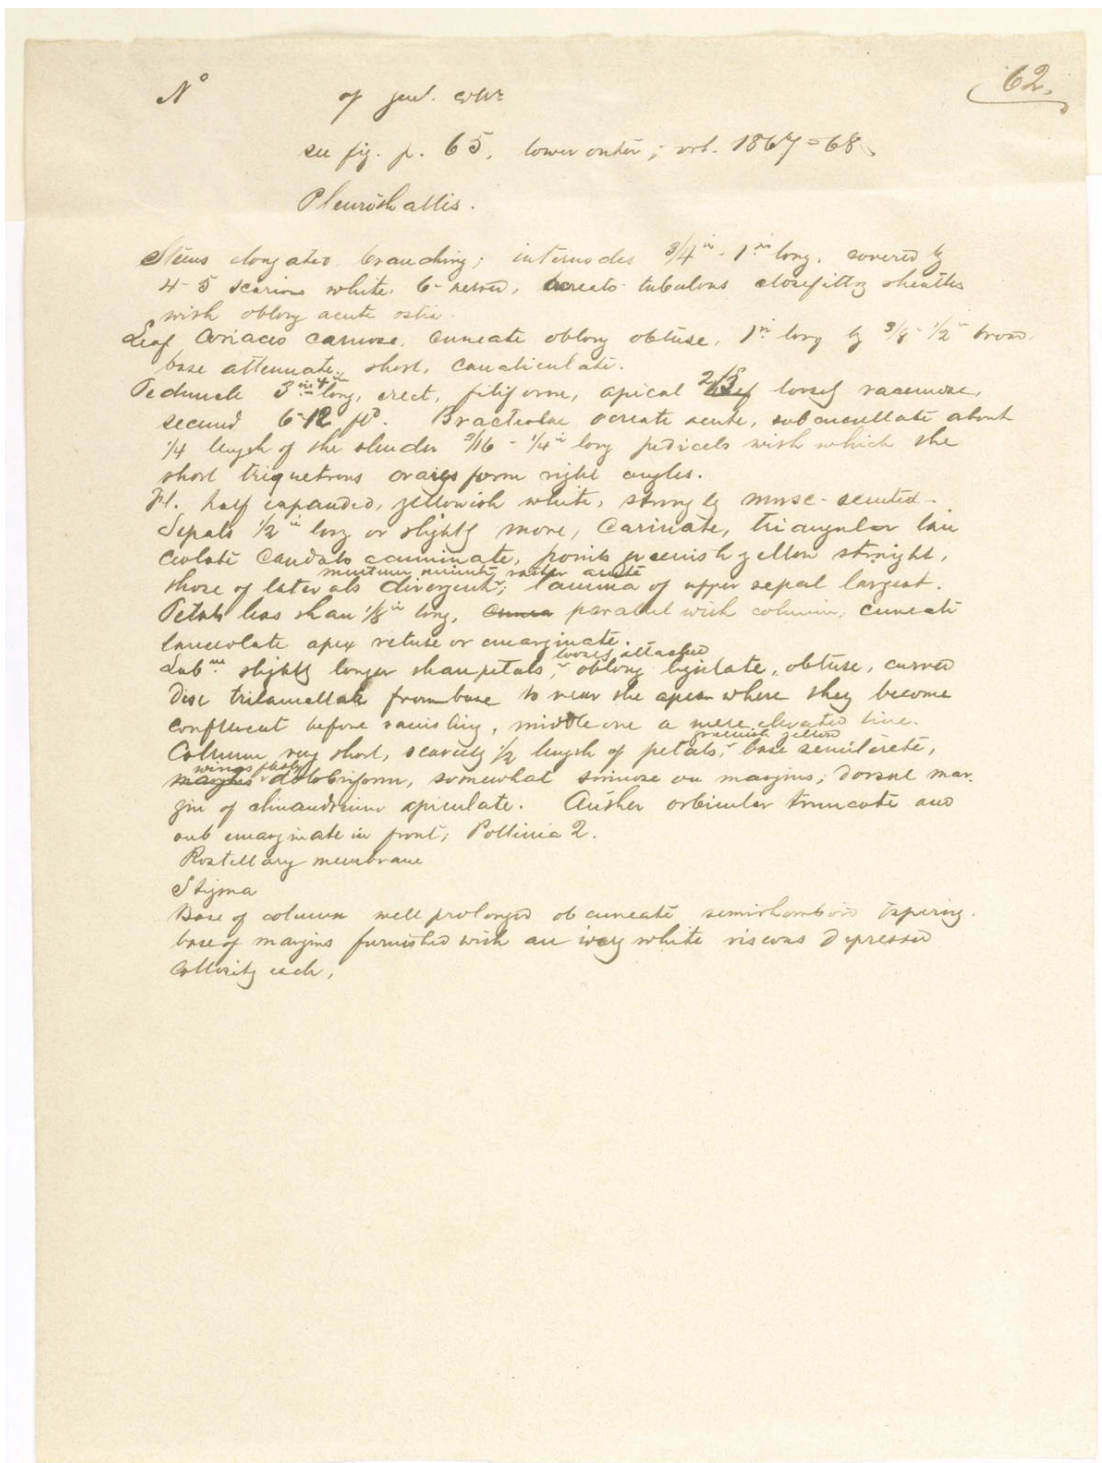 62.
No of genl. coll:
see fig. p. 65, lower outer; vol. 1867=68
Pleurothallis.
Stems elongated branching; internodes 3/4 in - 1 in long, covered by
4-5 scarious white 6-nerved, ocreato tubulous closefitting sheaths
with oblong acute ostia.
Leaf coriaceo carnose, cuneate oblong obtuse, 1 in long by 3/8 - 1/2 in broad,
base attenuate, short, canaliculate.
Peduncle 3 in - 4 in long, erect, filiform, apical 2/3 loosely racemose,
secund 6-12 fld. Bracteolae ocreate acute, subcucullate about
1/4 length of the slender 3/16 - 1/4 in long pedicels with which the
short triquetrous ovaries form right angles.
Fl. half expanded, yellowish white, strongly musc-scented.
Sepals 1/2 in long or slightly more, carinate, triangular lan
ceolate caudato acuminate, points greenish yellow straight,
mentum minute rather acute
those of laterals divergent; lamina of upper sepal largest.
Petals less than 1/8 in long, parallel with column, cuneate
lanceolate apex retuse or emarginate.
loosely attached
Labm slightly longer than petals, oblong ligulate, obtuse, curved
Disc trilamellate from base to near the apex where they become
confluent before vanishing, middle one a mere elevated line.
greenish yellow
Column very short, scarcely 1/2 length of petals, base semiterete,
wings
margins dolabriform, somewhat sinuose on margins; dorsal mar
gin of clinandrium apiculate. Anther orbicular truncate and
sub emarginate in front; Pollinia 2.
Rostellary membrane
Stigma
Base of column well prolonged ob cuneate semirhomboid tapering.
base of margins furnished with an ivory white viscous depressed
callosity each.